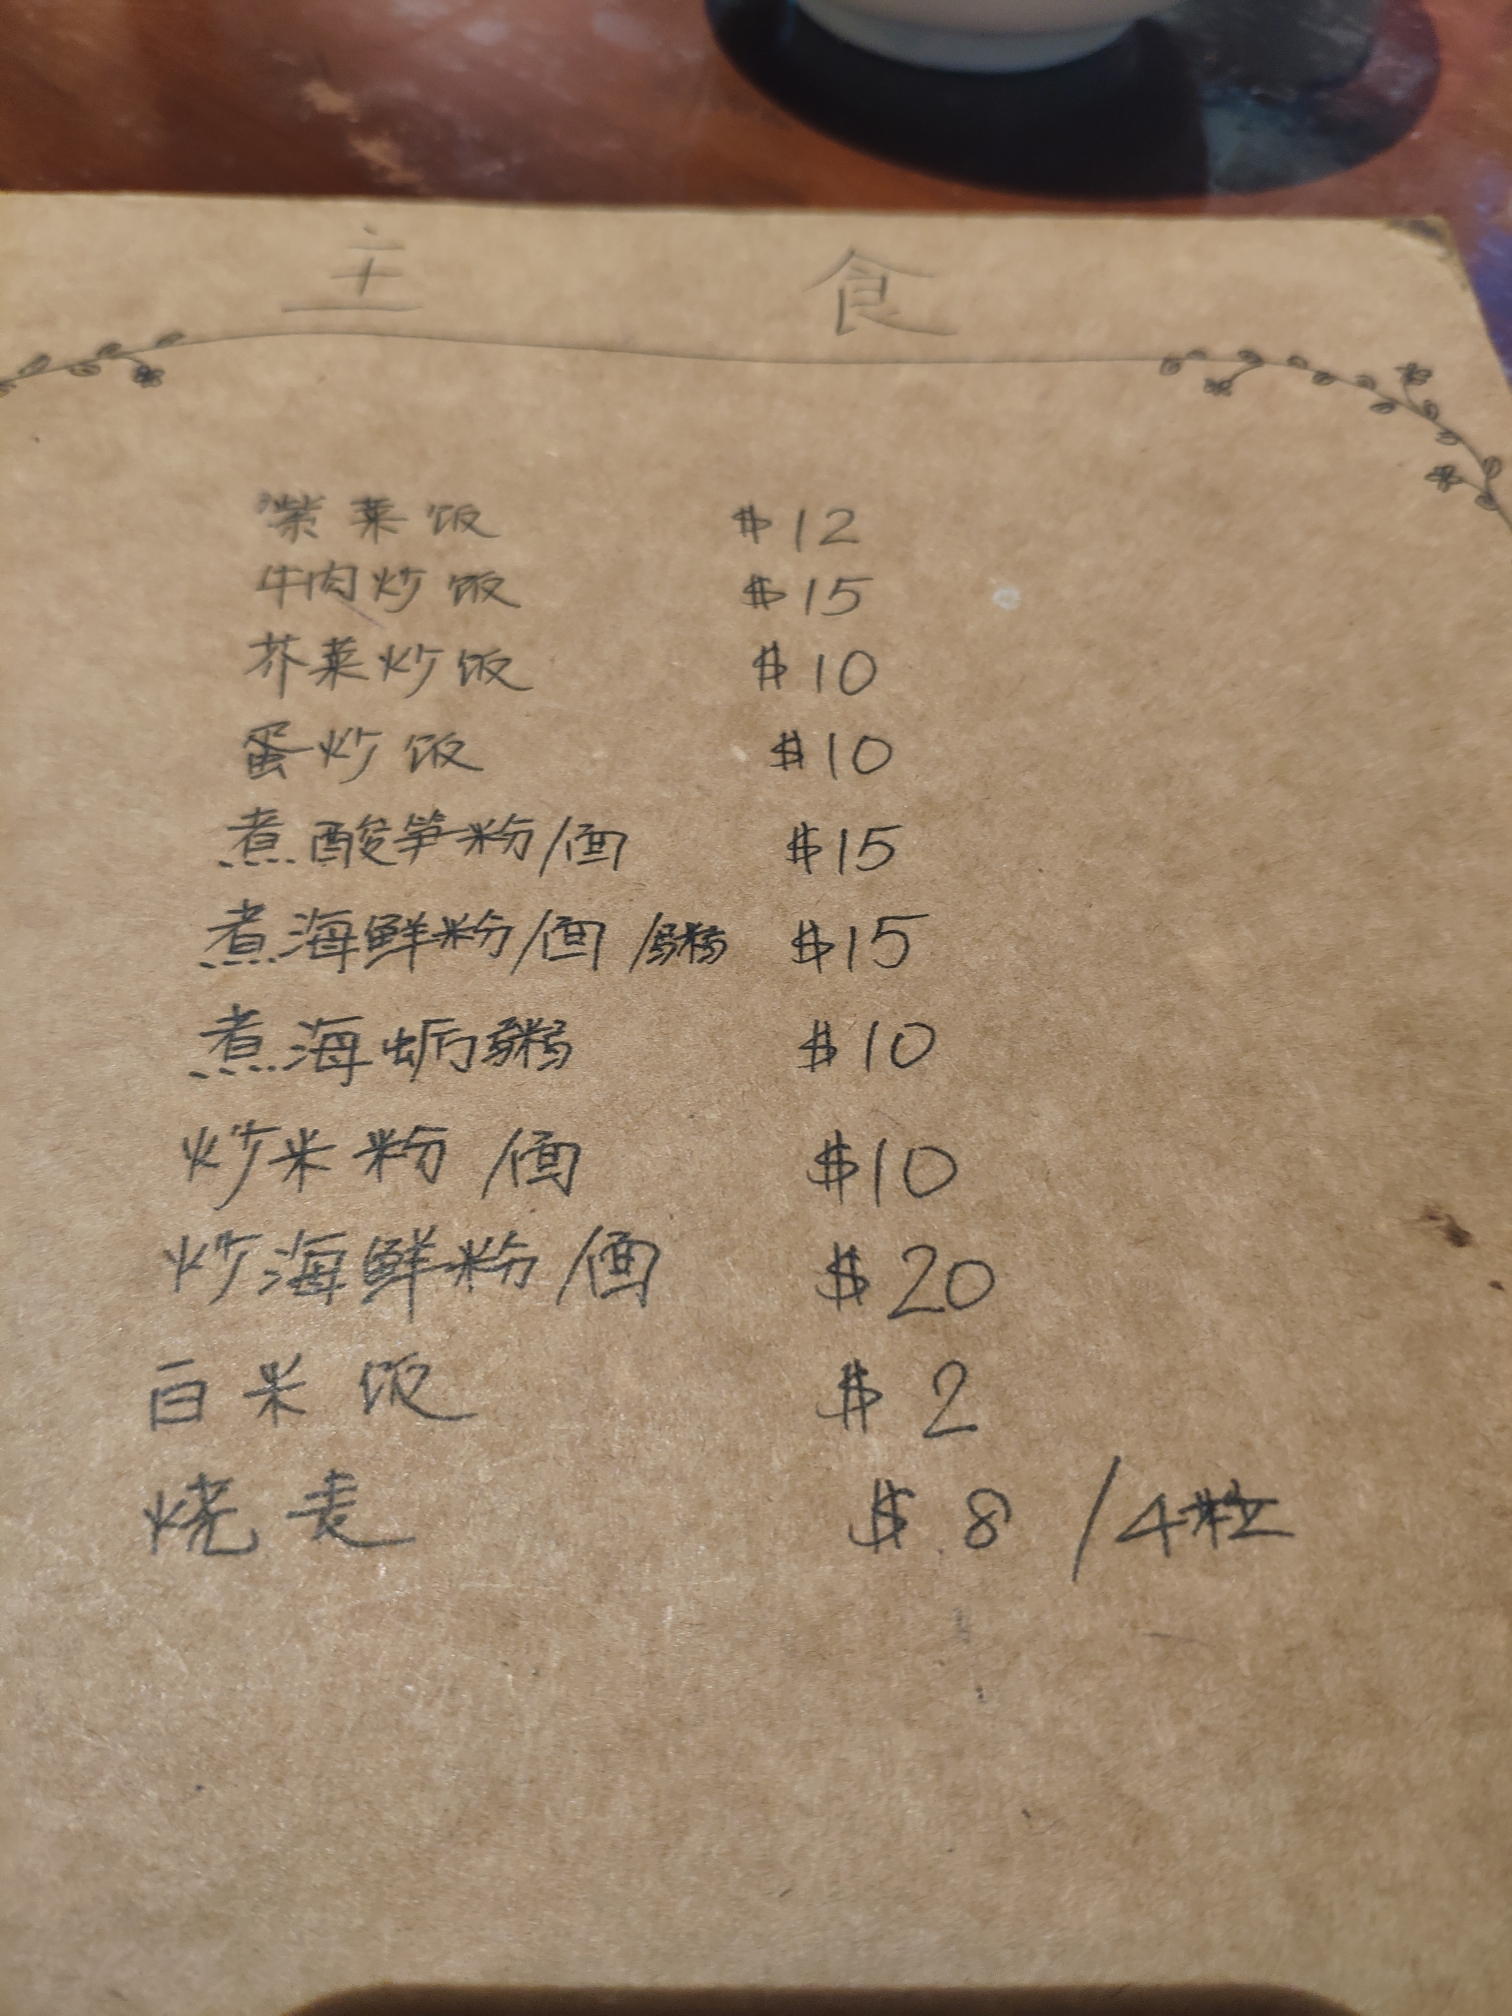 主 食
紫菜饭 $12
牛肉炒饭 $15
芥菜炒饭 $10
蛋炒饭 $10
煮酸笋粉/面 $15
煮海鲜粉/面/粥 $15
煮海蛎粥 $10
炒米粉/面 $10
炒海鲜粉/面 $20
白米饭 $2
烧麦 $8/4粒